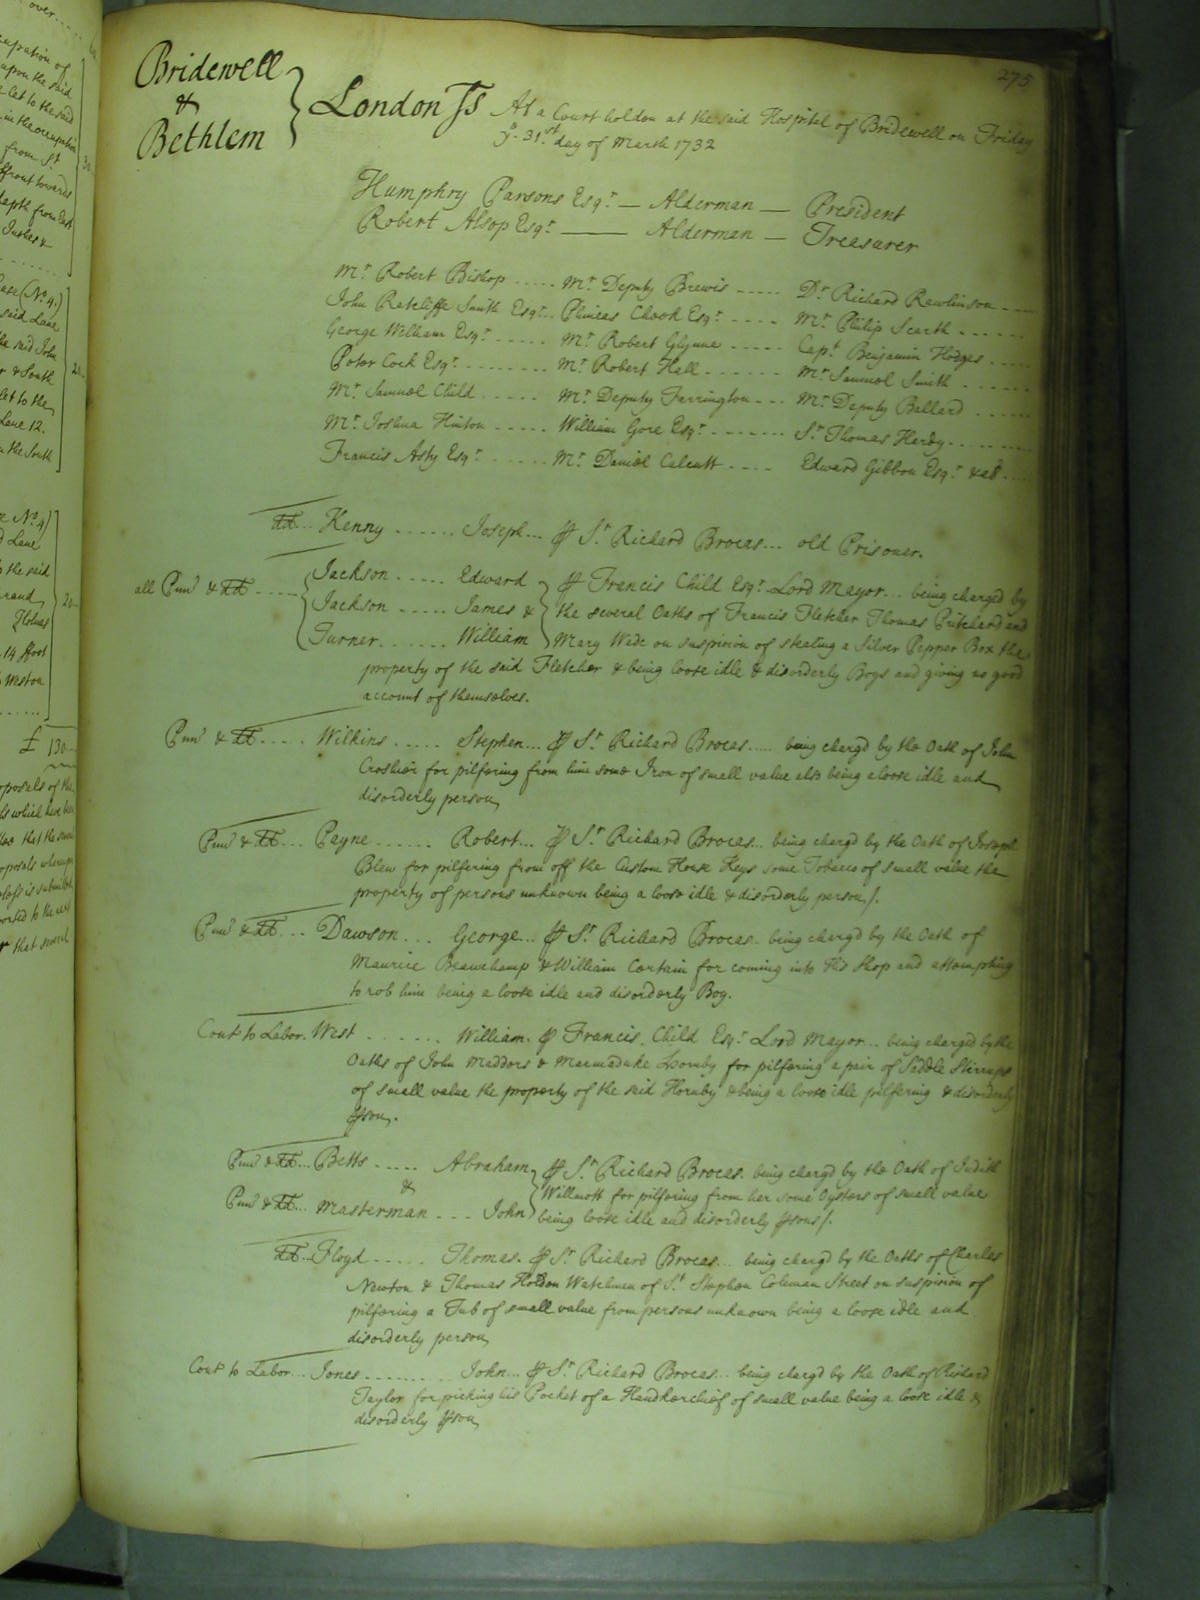 275
Bridewell
&
Bethlem
London Ss At a Court holden at the said Hospital of Bridewell on Friday
ye. 31st day of March 1732
Humphry Parsons Esqr — Alderman — President
Robert Alsop Esqr —— Alderman — Treasurer
Mr Robert Bishop ..... Mr Deputy Brewis ..... Dr Richard Rawlinson ....
John Ratcliffe Smith Esqr... Phineas Cheek Esqr .... Mr Philip Scarth ......
George Wilham Esqr ..... Mr Robert Glynne ..... Capt Benjamin Hodges .....
Peter Cock Esqr ........ Mr Robert Hall ...... Mr Samuel Smith ......
Mr Samuel Child ..... Mr Deputy Farrington ... Mr Deputy Ballard ......
Mr Joshua Hinton ..... William Gore Esqr ....... Sr Thomas Hardy ........
Francis Asty Esqr ...... Mr Daniel Calcutt .... Edward Gibbon Esqr & als ....
dd... Kenny ...... Joseph... P Sr Richard Brocas... old Prisoner.
all Pun'd & dd .... Jackson ..... Edward P Francis Child Esqr Lord Mayor... being chargd by
Jackson ..... James & the several Oaths of Francis Fletcher Thomas Pritchard and
Turner ...... William Mary Wade on suspicion of stealing a Silver Pepper Box the
property of the said Fletcher & being loose idle & disorderly Boys and giving no good
account of themselves.
Pun'd & dd ..... Wilkins ..... Stephen... P Sr Richard Brocas..... being chargd by the Oath of John
Croshier for pilfering from him some Iron of small value also being a loose idle and
disorderly person
Pun'd & dd ... Payne ...... Robert... P Sr Richard Brocas... being chargd by the Oath of Joseph
Blew for pilfering from off the Custom House Keys some Tobacco of small value the
property of persons unknown being a loose idle & disorderly person/.
Pun'd & dd ... Dawson ... George... P Sr Richard Brocas.. being chargd by the Oath of
Maurice Beauchamp & William Certain for coming into his shop and attempting
to rob him being a loose idle and disorderly Boy.
Cont to Labor. West ....... William. P Francis Child Esqr Lord Mayor... being chargd by the
Oaths of John Maddors & Marmaduke Hornby for pilfering a pair of Saddle Stirrups
of small value the property of the said Hornby & being a loose idle pilfering & disorderly
Pson.
Pun'd & dd... Betts ..... Abraham P Sr Richard Brocas. being chargd by the Oath of Judith
& Willmott for pilfering from her some Oysters of small value
Pun'd & dd... Masterman ... John being loose idle and disorderly Psons/.
dd... Floyd ..... Thomas. P Sr Richard Brocas... being chargd by the Oaths of Charles
Newton & Thomas Holdon Watchmen of St Stephen Coleman Street on suspicion of
pilfering a Tub of small value from persons unknown being a loose idle and
disorderly person
Cont to Labor... Jones ........ John... P Sr Richard Brocas... being chargd by the Oath of Richard
Taylor for picking his Pocket of a Handkerchief of small value being a loose idle &
disorderly Pson